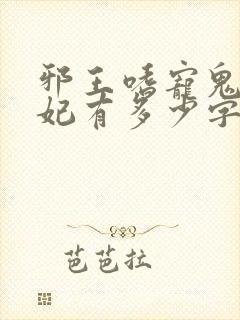 邪王嗜寵鬼
妃有多少字
芭芭拉